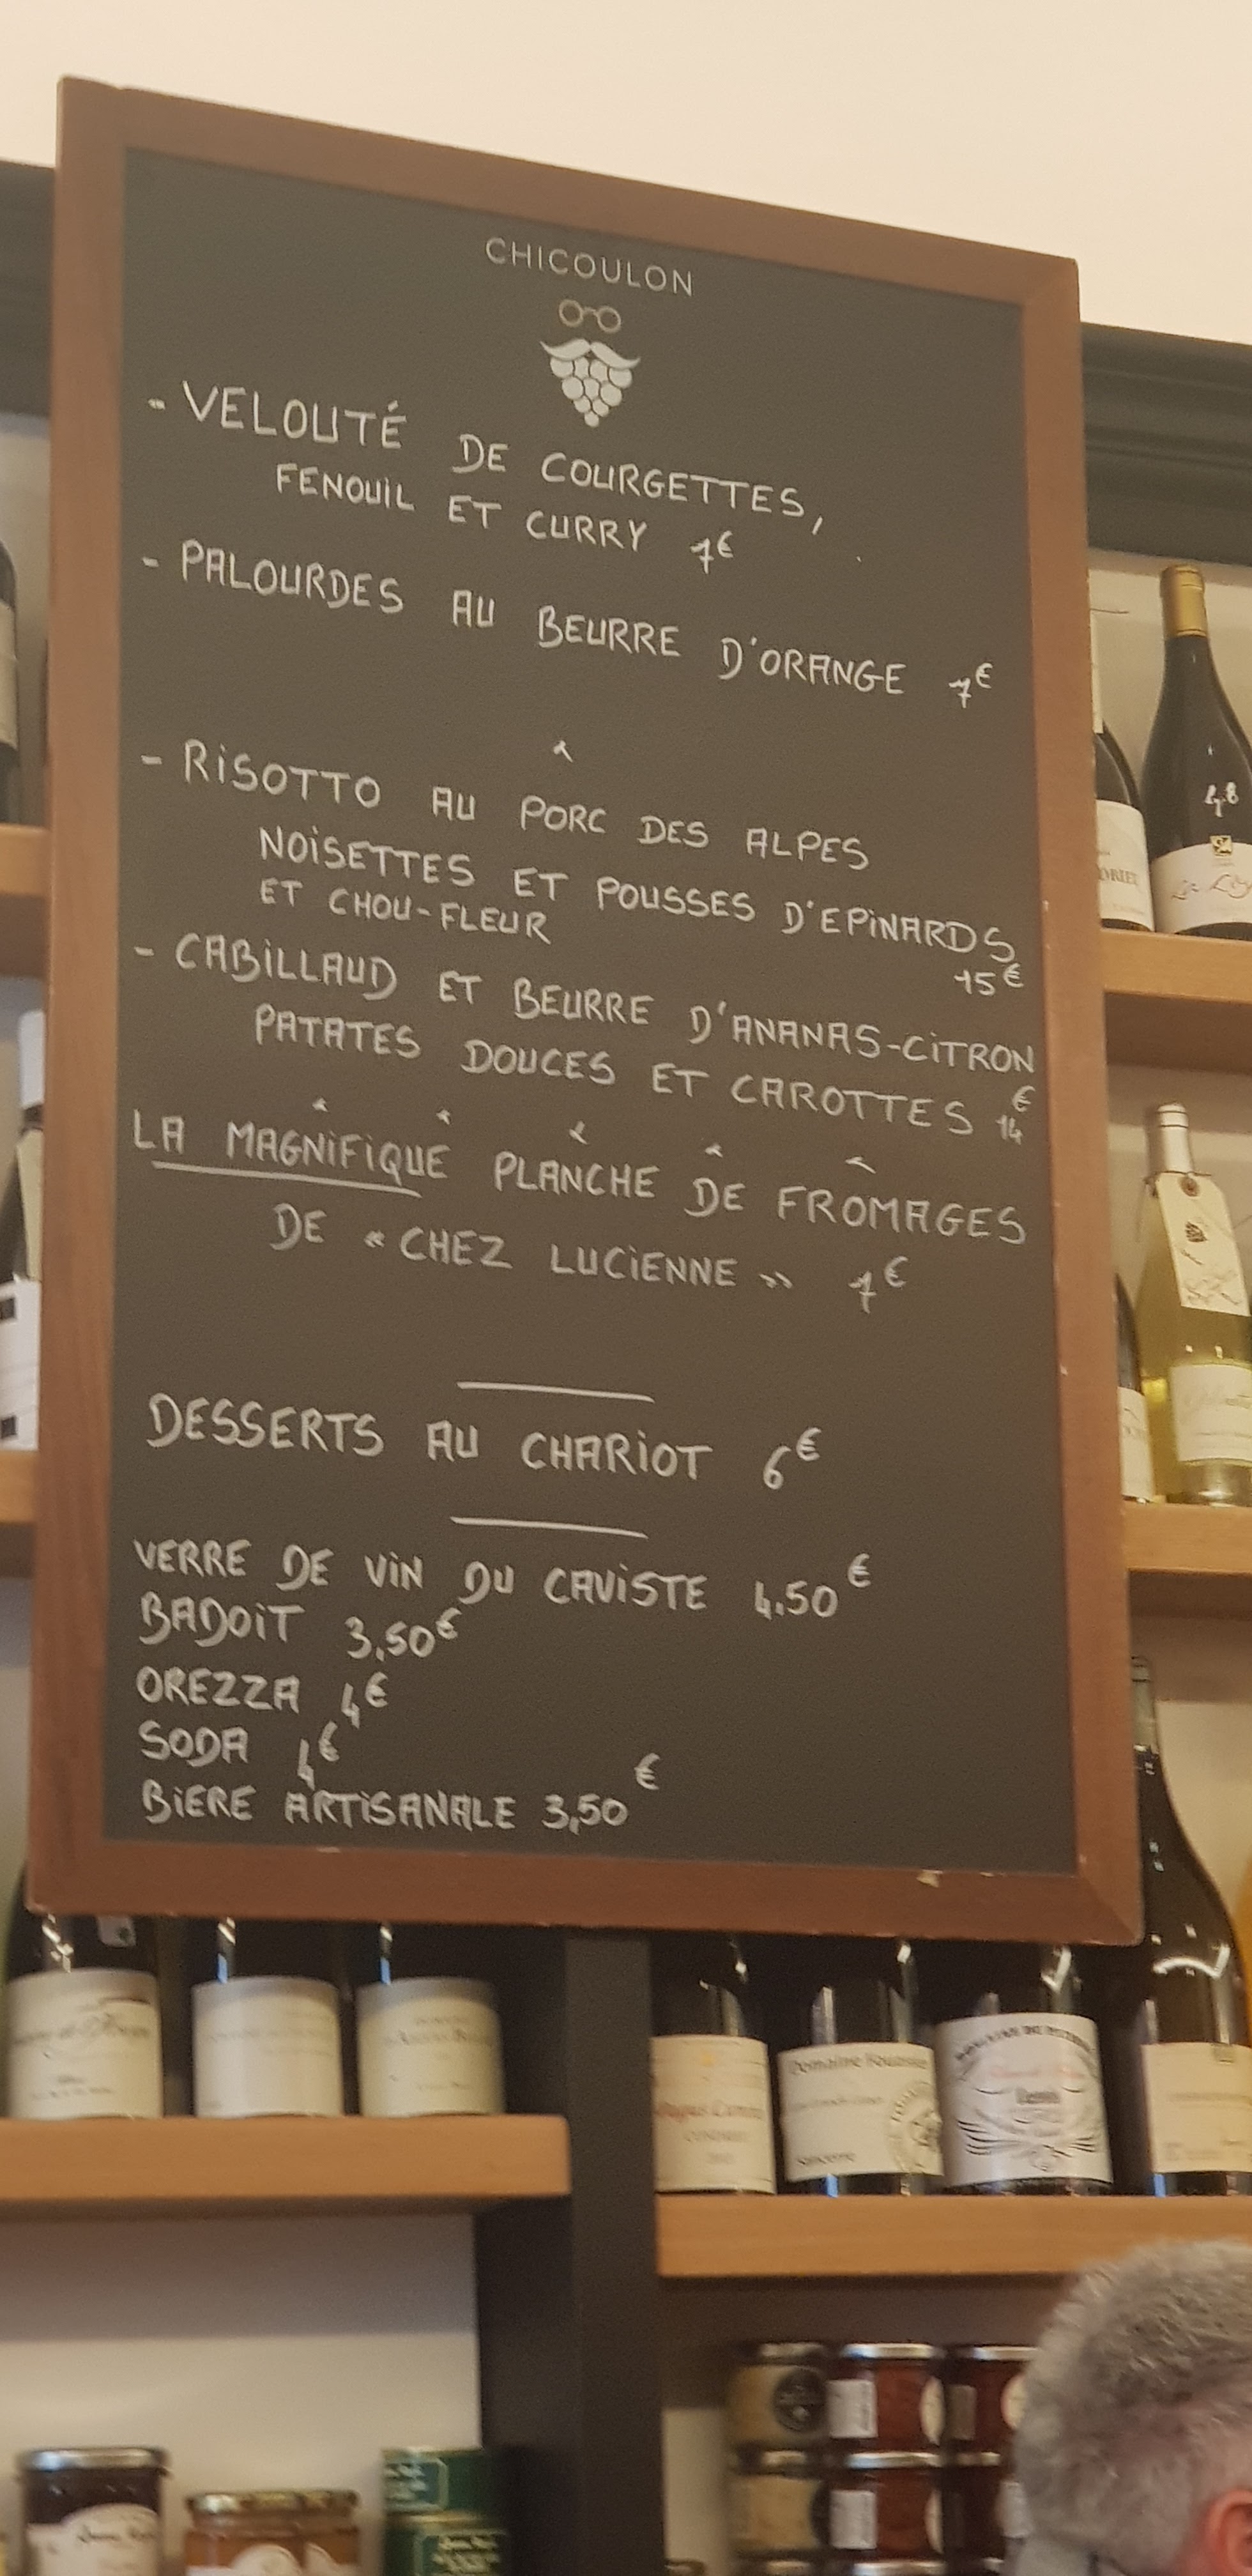 CHICOULON
- VELOUTÉ DE COURGETTES,
FENOUIL ET CURRY 7€
- PALOURDES AU BEURRE D'ORANGE 7€
- RISOTTO AU PORC DES ALPES
NOISETTES ET POUSSES D'EPINARDS
ET CHOU-FLEUR 15€
- CABILLAUD ET BEURRE D'ANANAS-CITRON
PATATES DOUCES ET CAROTTES 14€
LA MAGNIFIQUE PLANCHE DE FROMAGES
DE « CHEZ LUCIENNE » 7€
DESSERTS AU CHARIOT 6€
VERRE DE VIN DU CAVISTE 4.50€
BADOIT 3,50€
OREZZA 4€
SODA 4€
BIERE ARTISANALE 3,50€
Domaine